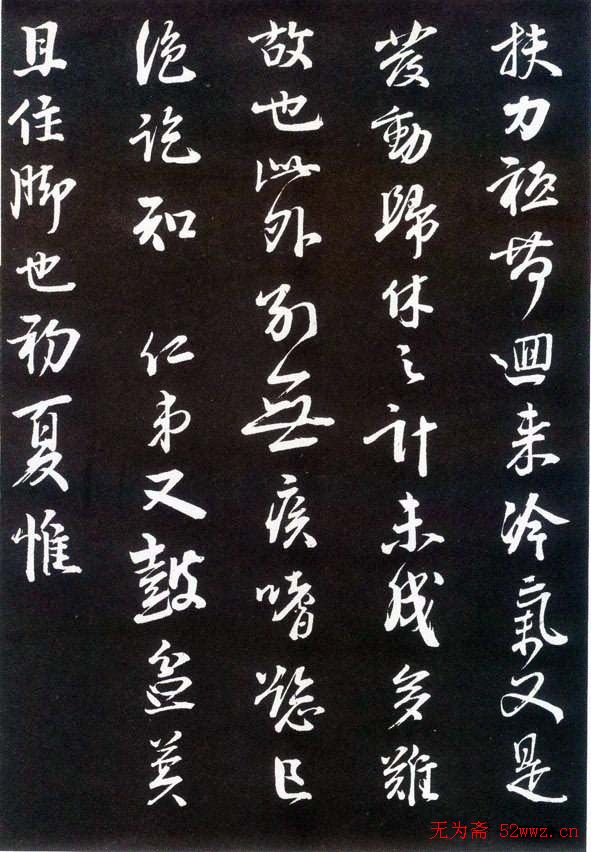 扶力迴来冷氣又是
發動歸休之計未成多難
故也此外别無疾嗜慾已
絶訖知 仁弟又鼓盆莫
且住脚也初夏惟
无为斋 52wwz.cn